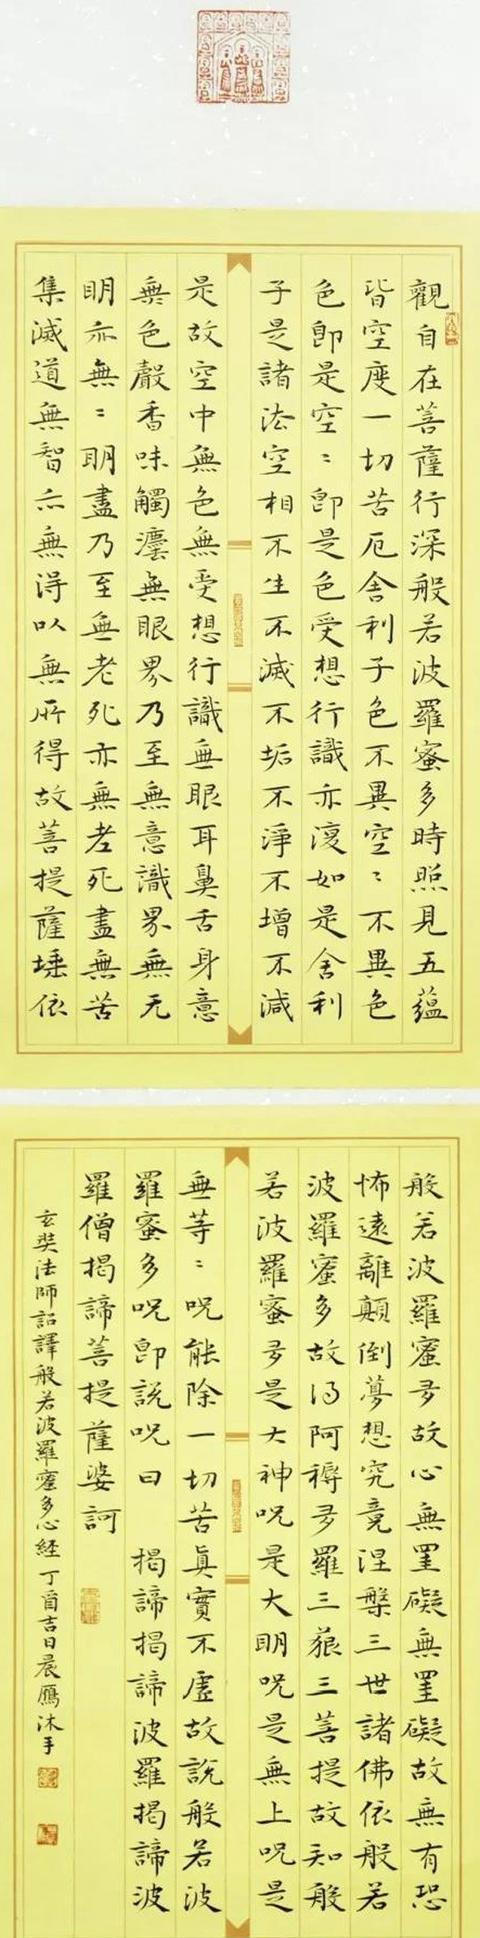 觀自在菩薩行深般若波羅蜜多時照見五蘊
皆空度一切苦厄舍利子色不異空〻不異色
色即是空〻即是色受想行識亦復如是舍利
子是諸法空相不生不滅不垢不淨不增不減
是故空中無色無受想行識無眼耳鼻舌身意
無色聲香味觸灋無眼界乃至無意識界無无
眀亦無〻眀盡乃至無老死亦無老死盡無苦
集滅道無智亦無得以無所得故菩提薩埵依
般若波羅蜜多故心無罣礙無罣礙故無有恐
怖遠離顛倒夢想究竟涅槃三世諸佛依般若
波羅蜜多故得阿耨多羅三藐三菩提故知般
若波羅蜜多是大神呪是大明呪是無上呪是
無等〻呪能除一切苦真實不虛故說般若波
羅蜜多呪即說呪曰 揭諦揭諦波羅揭諦波
羅僧揭諦菩提薩婆訶
玄奘法師詔譯般若波羅蜜多心經 丁酉吉日晨雁沐手